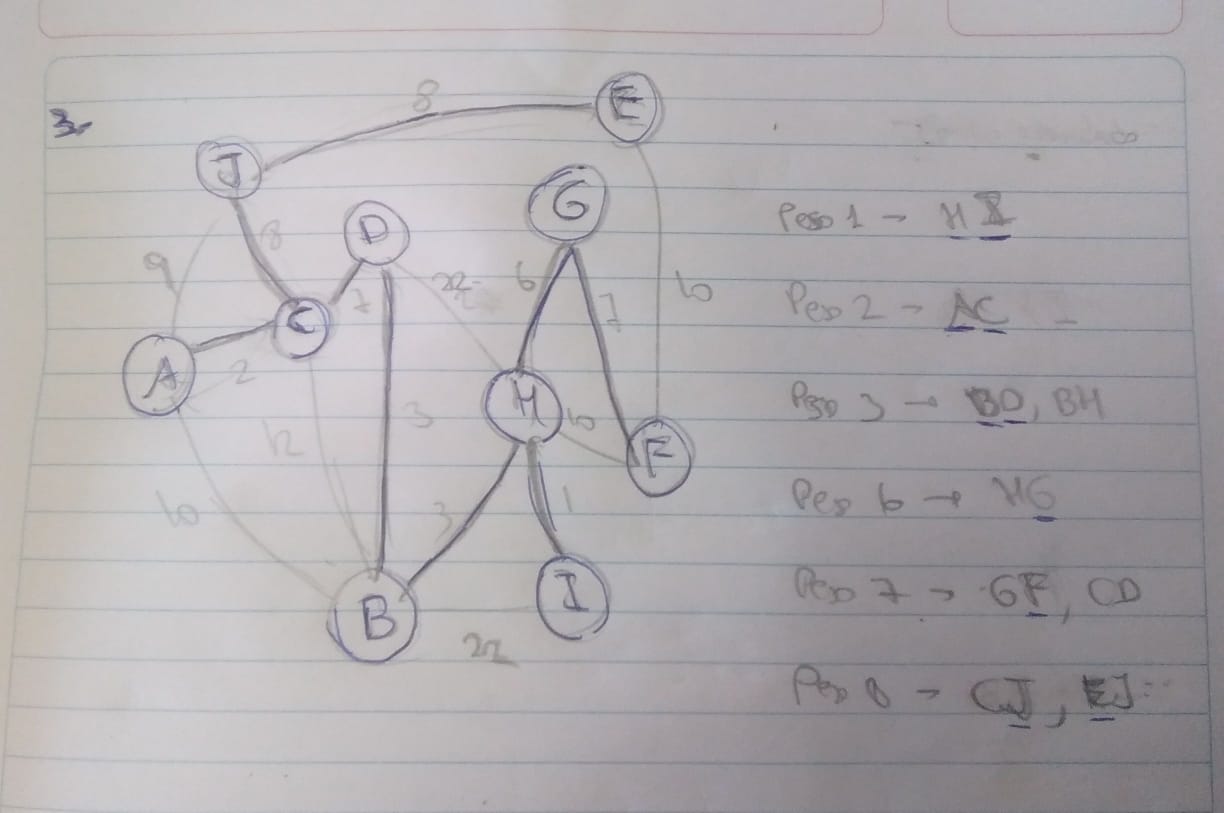 3.
8
E
J
G
D
8
9
22
6
7
10
7
C
A
2
H
10
3
12
F
10
3
1
B
I
22
Peso 1 → HI
Peso 2 → AC
Peso 3 → BD, BH
Peso 6 → HG
Peso 7 → GF, CD
Peso 8 → CJ, EJ